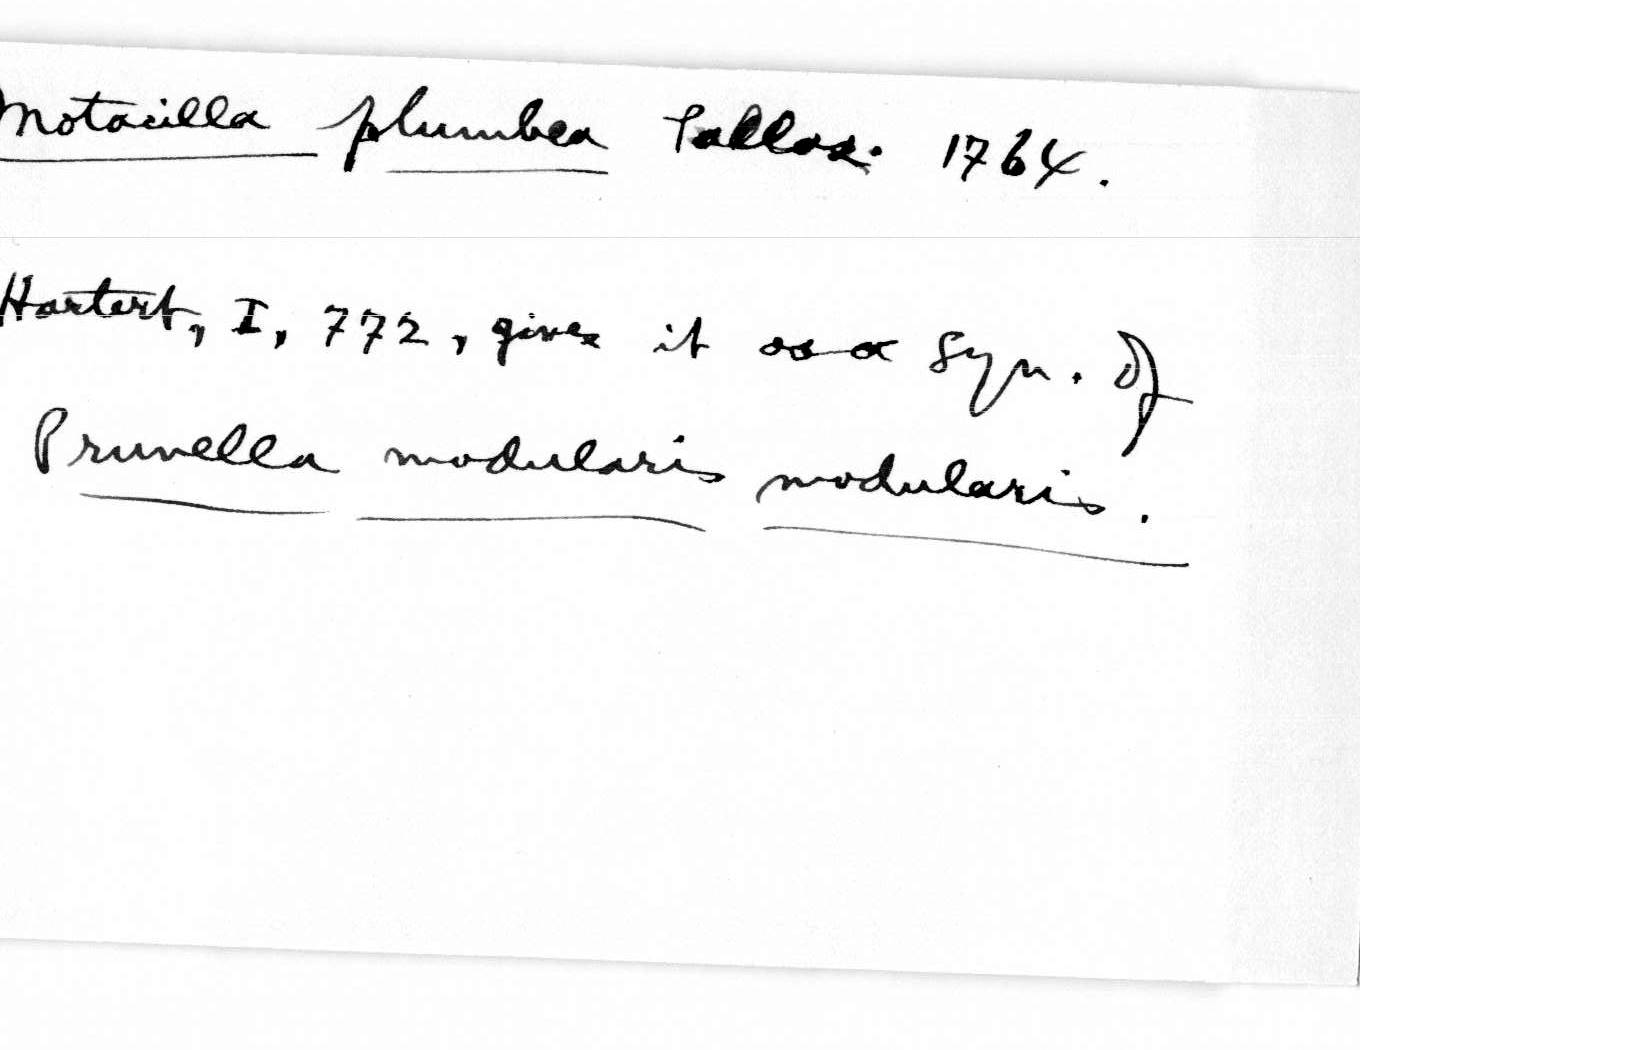 Motacilla plumbea Pallas. 1764.
Hartert, I, 772, gives it as a Syn. of
Prunella modularis modularis.